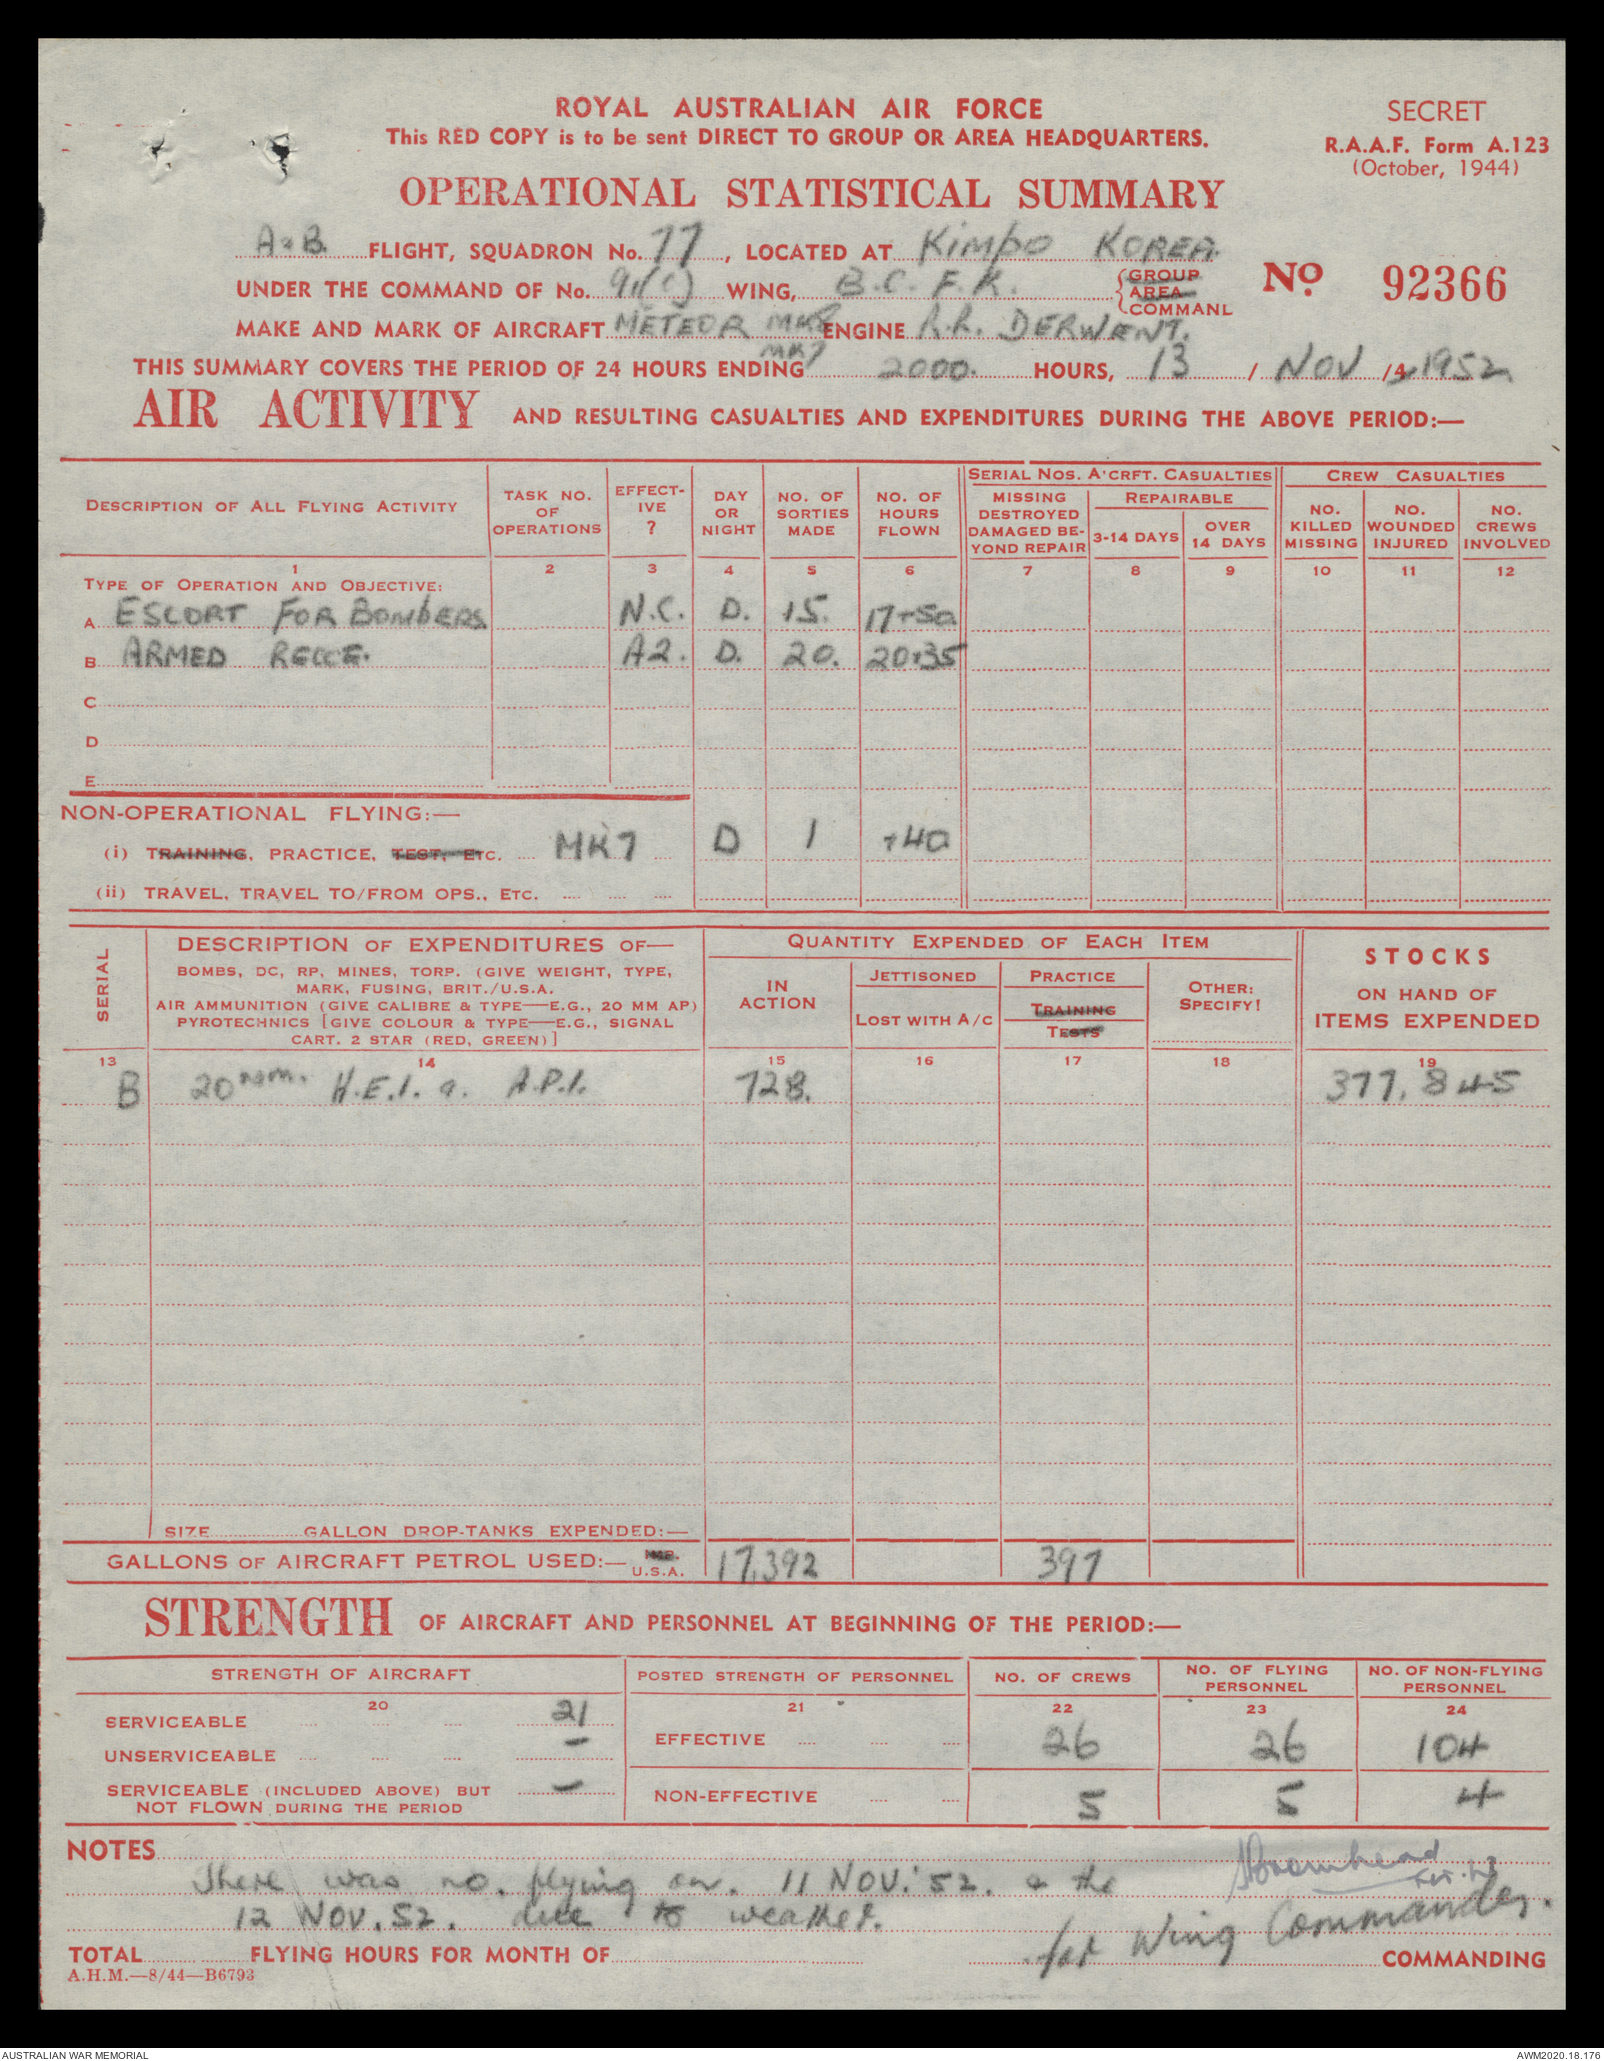 ROYAL AUSTRALIAN AIR FORCE
This RED COPY is to be sent DIRECT TO GROUP OR AREA HEADQUARTERS.
SECRET
R.A.A.F. Form A.123
(October, 1944)
OPERATIONAL STATISTICAL SUMMARY
A & B. FLIGHT, SQUADRON No. 77, LOCATED AT Kimpo KOREA.
UNDER THE COMMAND OF No. 91(C) WING, B.C.F.K. GROUP AREA COMMAND
No 92366
MAKE AND MARK OF AIRCRAFT METEOR MK8 ENGINE R.R. DERWENT.
MK7
THIS SUMMARY COVERS THE PERIOD OF 24 HOURS ENDING 2000. HOURS, 13 / NOV /4 1952
AIR ACTIVITY AND RESULTING CASUALTIES AND EXPENDITURES DURING THE ABOVE PERIOD:—
DESCRIPTION OF ALL FLYING ACTIVITY
TASK NO. OF OPERATIONS
EFFECTIVE ?
DAY OR NIGHT
NO. OF SORTIES MADE
NO. OF HOURS FLOWN
SERIAL NOS. A'CRFT. CASUALTIES
MISSING DESTROYED DAMAGED BEYOND REPAIR
REPAIRABLE
3-14 DAYS
OVER 14 DAYS
CREW CASUALTIES
NO. KILLED MISSING
NO. WOUNDED INJURED
NO. CREWS INVOLVED
1 2 3 4 5 6 7 8 9 10 11 12
TYPE OF OPERATION AND OBJECTIVE:
A ESCORT FOR BOMBERS N.C. D. 15. 17-50
B ARMED RECCE. A2. D. 20. 20.35
C
D
E
NON-OPERATIONAL FLYING:—
(i) TRAINING, PRACTICE, TEST, ETC. MK7 D 1 -40
(ii) TRAVEL, TRAVEL TO/FROM OPS., ETC.
SERIAL
DESCRIPTION OF EXPENDITURES OF—
BOMBS, DC, RP, MINES, TORP. (GIVE WEIGHT, TYPE,
MARK, FUSING, BRIT./U.S.A.
AIR AMMUNITION (GIVE CALIBRE & TYPE—E.G., 20 MM AP)
PYROTECHNICS [GIVE COLOUR & TYPE—E.G., SIGNAL
CART. 2 STAR (RED, GREEN)]
QUANTITY EXPENDED OF EACH ITEM
IN ACTION
JETTISONED
LOST WITH A/C
PRACTICE
TRAINING
TESTS
OTHER: SPECIFY!
STOCKS
ON HAND OF
ITEMS EXPENDED
13 14 15 16 17 18 19
B 20 mm. H.E.I. & A.P.I. 728. 377,845
SIZE GALLON DROP-TANKS EXPENDED:—
GALLONS OF AIRCRAFT PETROL USED:— IMP. U.S.A. 17,392 397
STRENGTH OF AIRCRAFT AND PERSONNEL AT BEGINNING OF THE PERIOD:—
STRENGTH OF AIRCRAFT
POSTED STRENGTH OF PERSONNEL
NO. OF CREWS
NO. OF FLYING PERSONNEL
NO. OF NON-FLYING PERSONNEL
20 21 22 23 24
SERVICEABLE 21
UNSERVICEABLE —
SERVICEABLE (INCLUDED ABOVE) BUT
NOT FLOWN DURING THE PERIOD —
EFFECTIVE 26 26 104
NON-EFFECTIVE 5 5 4
NOTES
There was no. flying on. 11 NOV. '52. & the
12 NOV. 52. due to weather.
for Wing Commander.
TOTAL FLYING HOURS FOR MONTH OF COMMANDING
A.H.M.—8/44—B6793
AUSTRALIAN WAR MEMORIAL
AWM2020.18.176